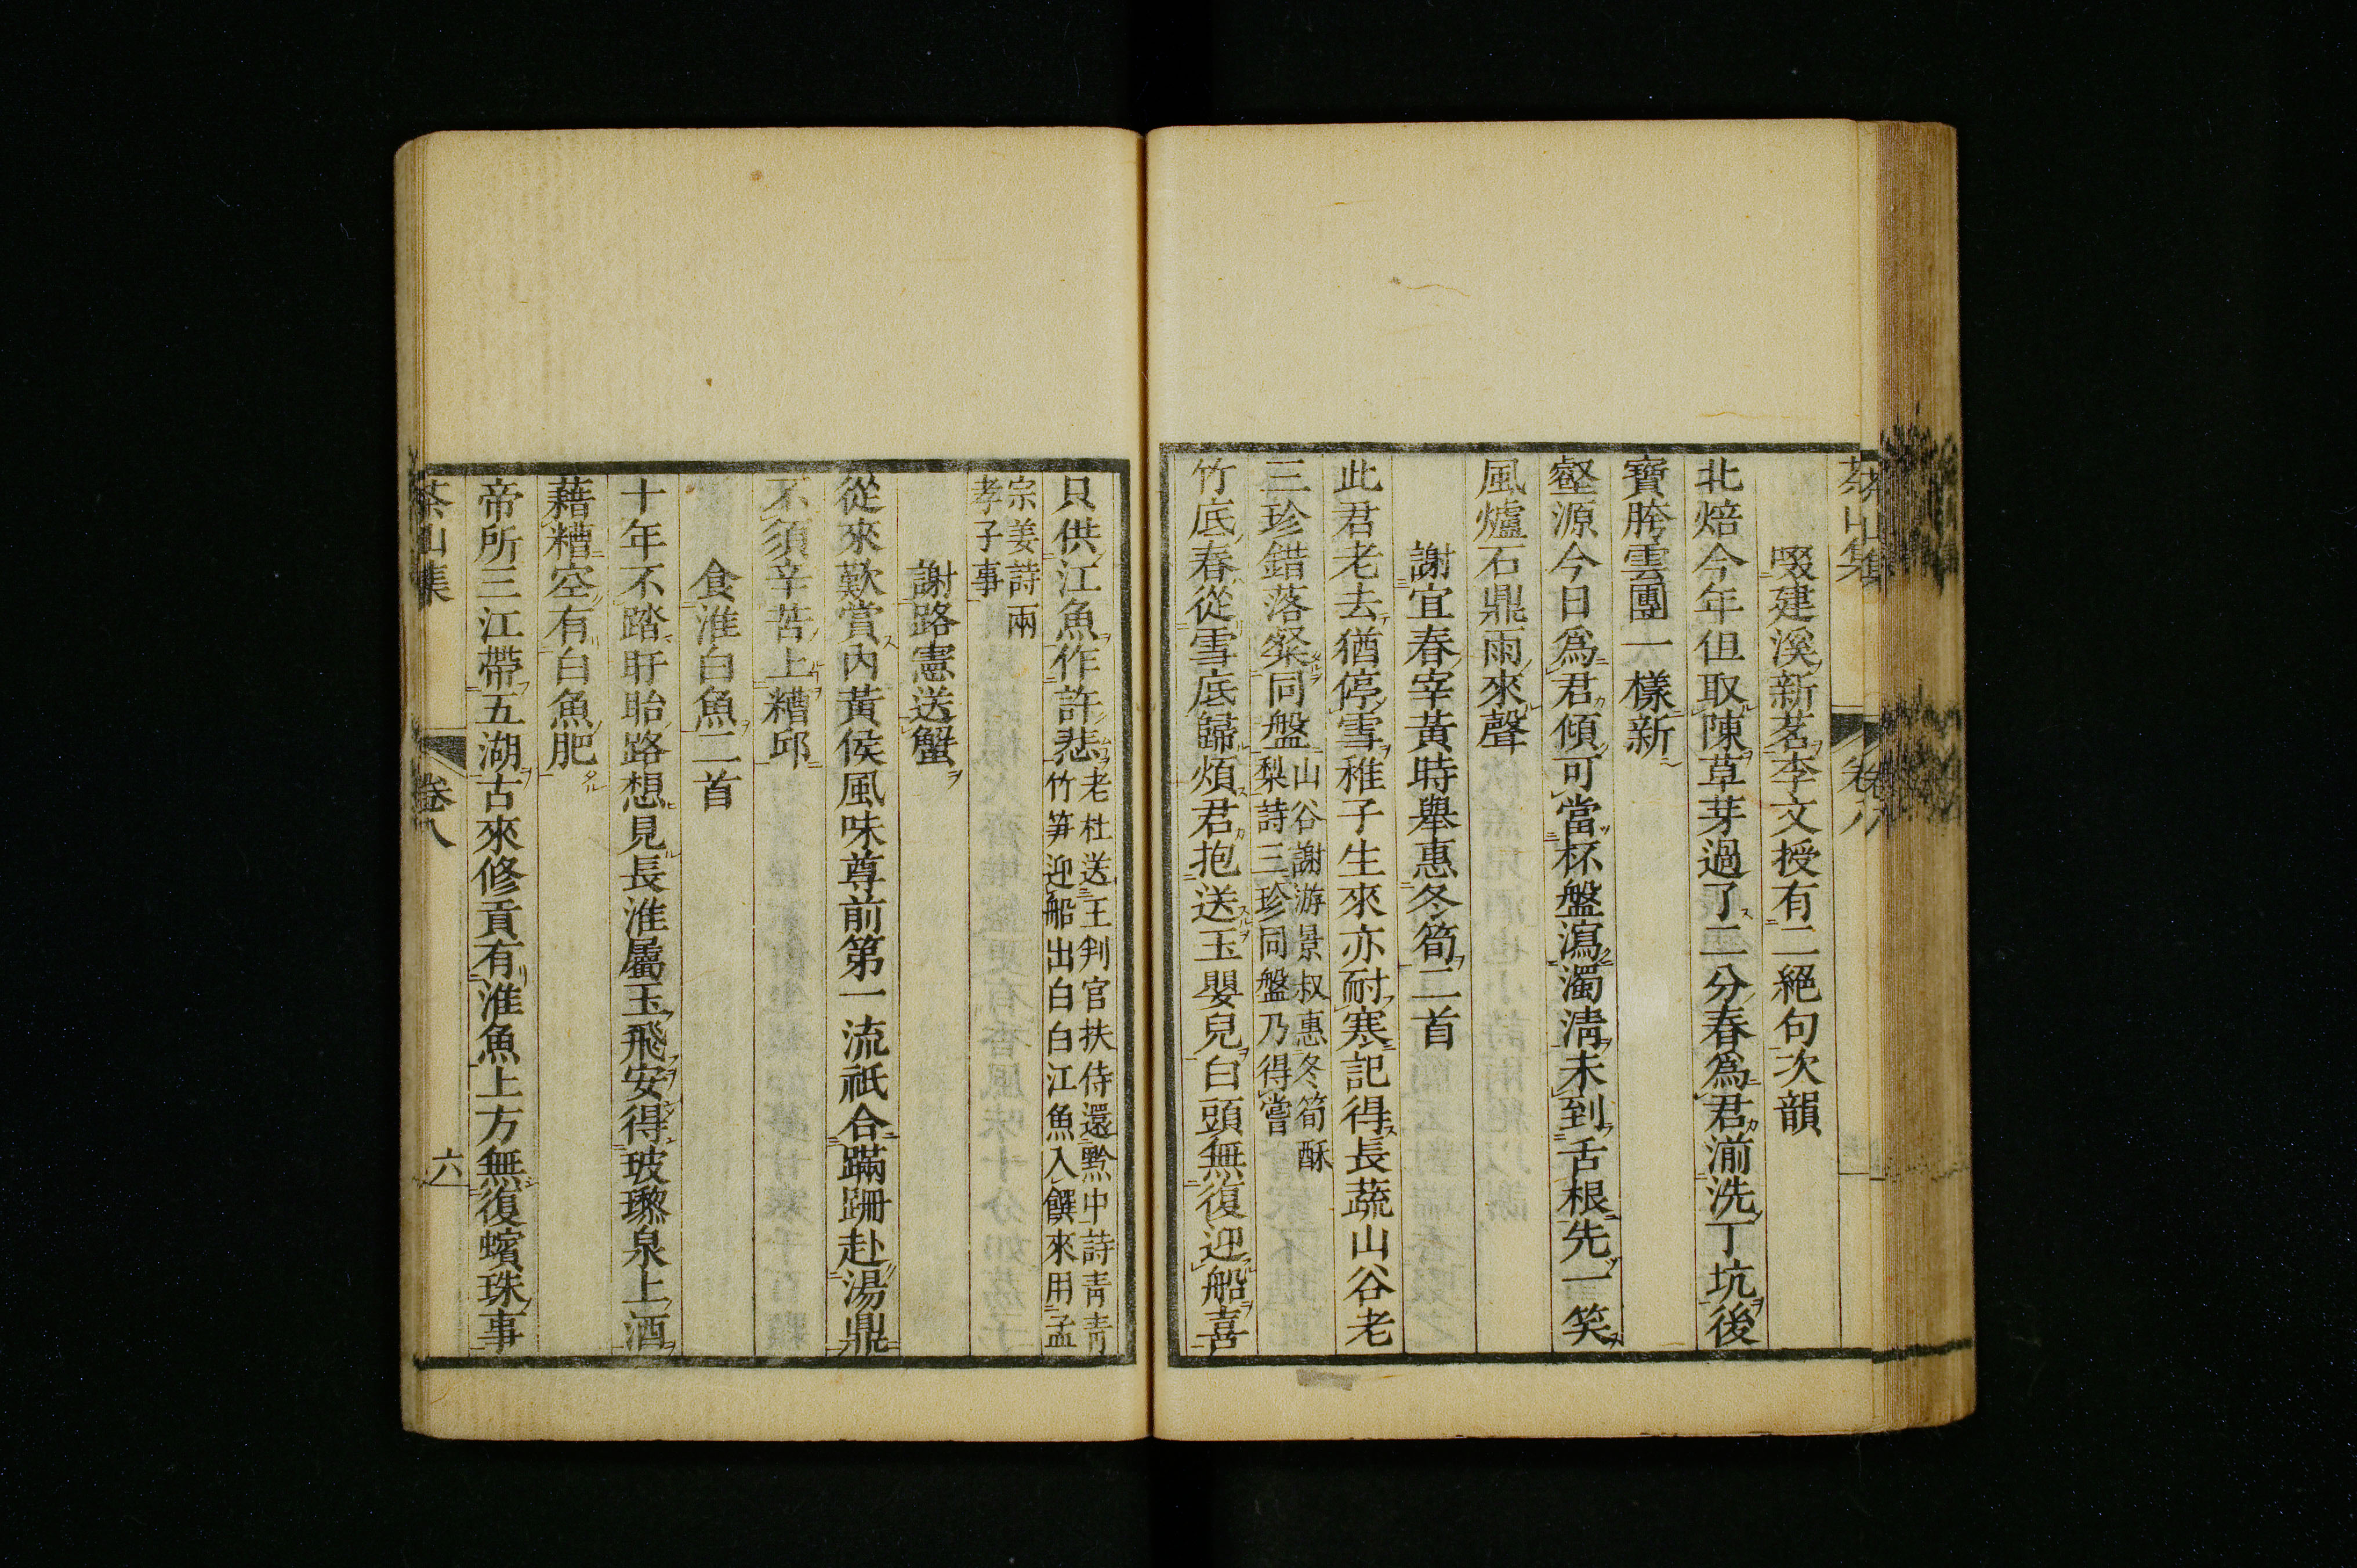 茶山集 卷八
啜建溪新茗李文授有二絕句次韻
北焙今年但取陳草芽過了二分春爲君湔洗丁坑後
寶胯雲團一樣新
壑源今日爲君傾可當杯盤瀉濁淸未到舌根先一笑
風爐石鼎雨來聲
謝宜春宰黃時舉惠冬筍二首
此君老去猶停雪稚子生來亦耐寒記得長蔬山谷老
三珍錯落粲同盤山谷謝游景叔惠冬筍酥
梨詩三珍同盤乃得嘗
竹底春從雪底歸煩君抱送玉嬰兒白頭無復迎船喜
只供江魚作許悲老杜送王判官扶侍還黔中詩靑靑
竹笋迎船出白白江魚入饌來用孟
宗姜詩兩
孝子事
謝路憲送蟹
從來歎賞內黃侯風味尊前第一流祇合蹣跚赴湯鼎
不須辛苦上糟邱
食淮白魚二首
十年不踏盱眙路想見長淮屬玉飛安得玻瓈泉上酒
藉糟空有白魚肥
帝所三江帶五湖古來修貢有淮魚上方無復蠙珠事
茶山集 卷八 六